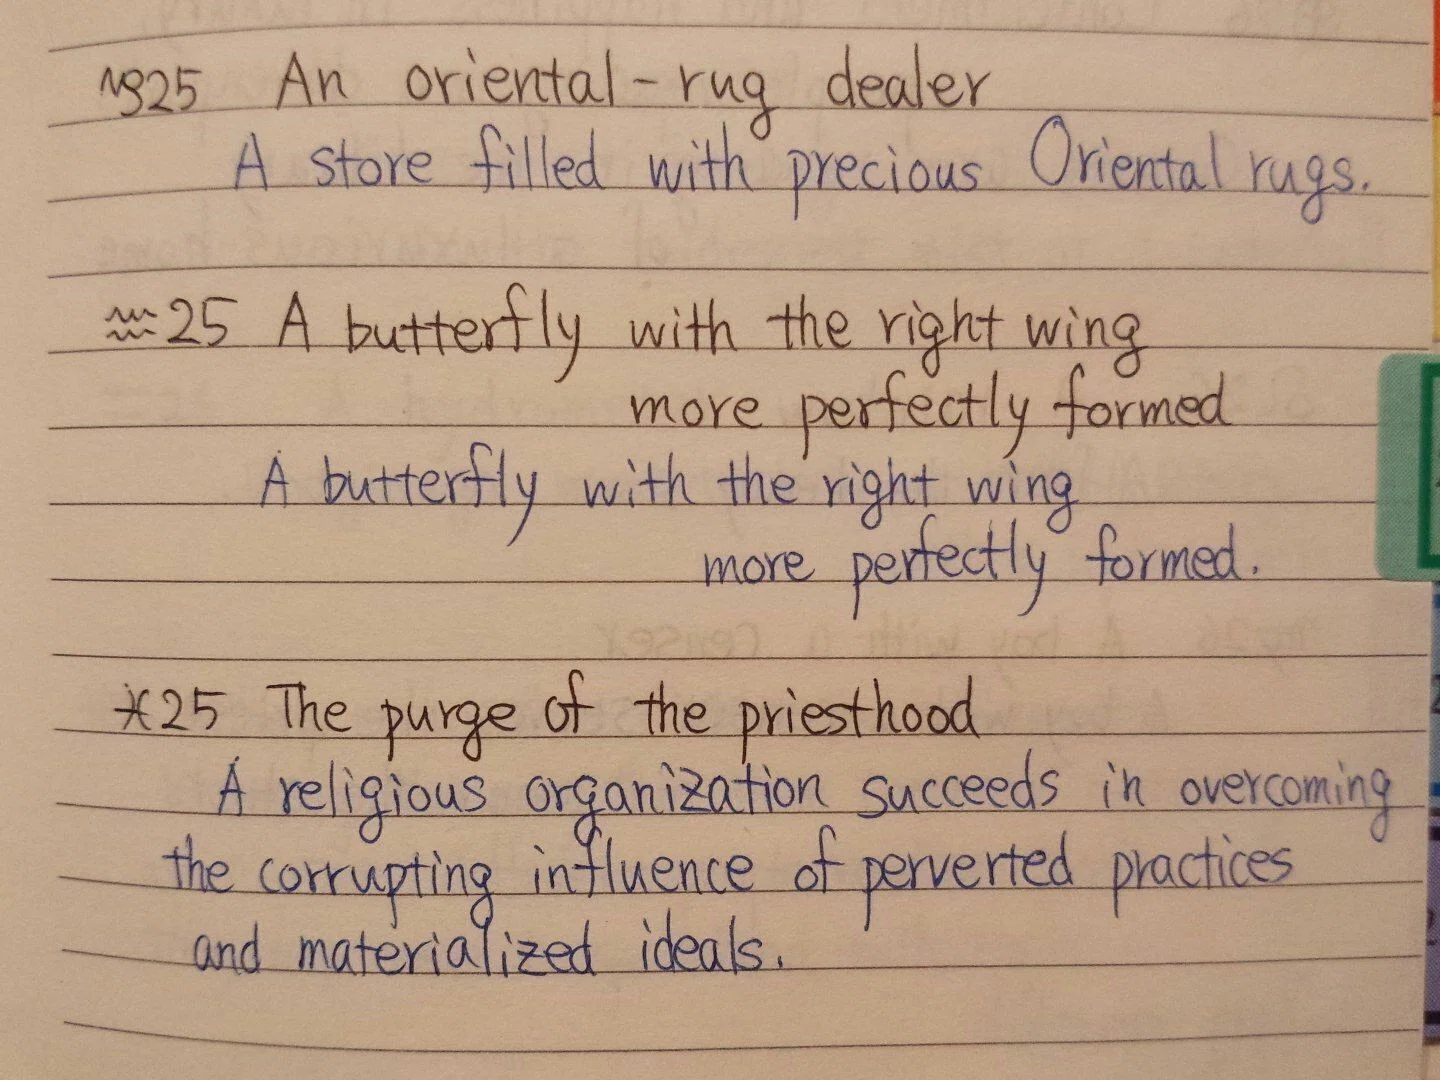 ♑25 An oriental-rug dealer
A store filled with precious Oriental rugs.
♒25 A butterfly with the right wing
more perfectly formed
A butterfly with the right wing
more perfectly formed.
♓25 The purge of the priesthood
A religious organization succeeds in overcoming
the corrupting influence of perverted practices
and materialized ideals.